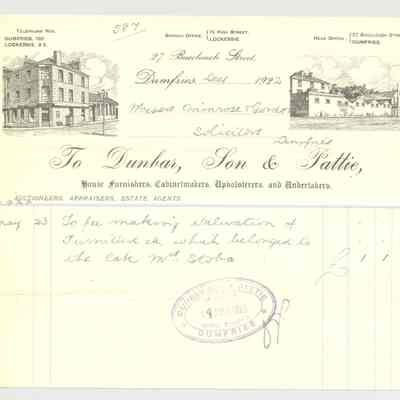 587
TELEPHONE NOS.
DUMFRIES, 190
LOCKERBIE, X 5.
BRANCH OFFICE 75 HIGH STREET, LOCKERBIE.
HEAD OFFICE 27 BUCCLEUCH STREET, DUMFRIES.
27 Buccleuch Street,
Dumfries, Decr 1922
Messrs Primrose & Gordon
Solicitors
Dumfries
To Dunbar, Son & Pattie,
House Furnishers, Cabinetmakers, Upholsterers, and Undertakers.
AUCTIONEERS, APPRAISERS, ESTATE AGENTS
1922
May 23 To fee making valuation of
Furniture &c which belonged to
the late Mrs Stoba £ 1 1
DUMFRIES